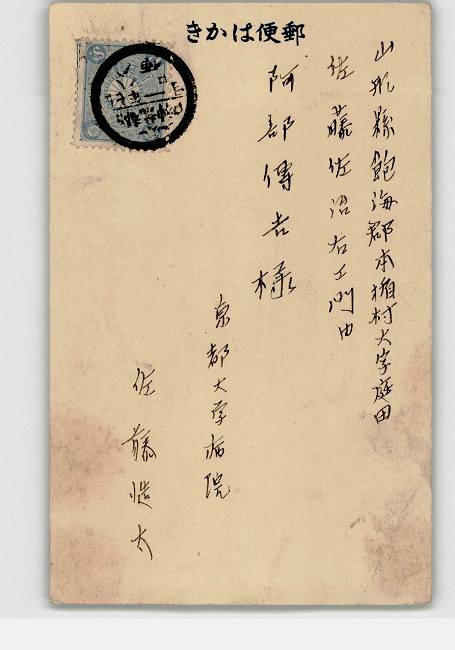 郵便はかき
山形縣飽海郡本楯村大字庭田
佐藤佐治右エ門内
阿部傳吉様
京都大学病院
佐藤 太